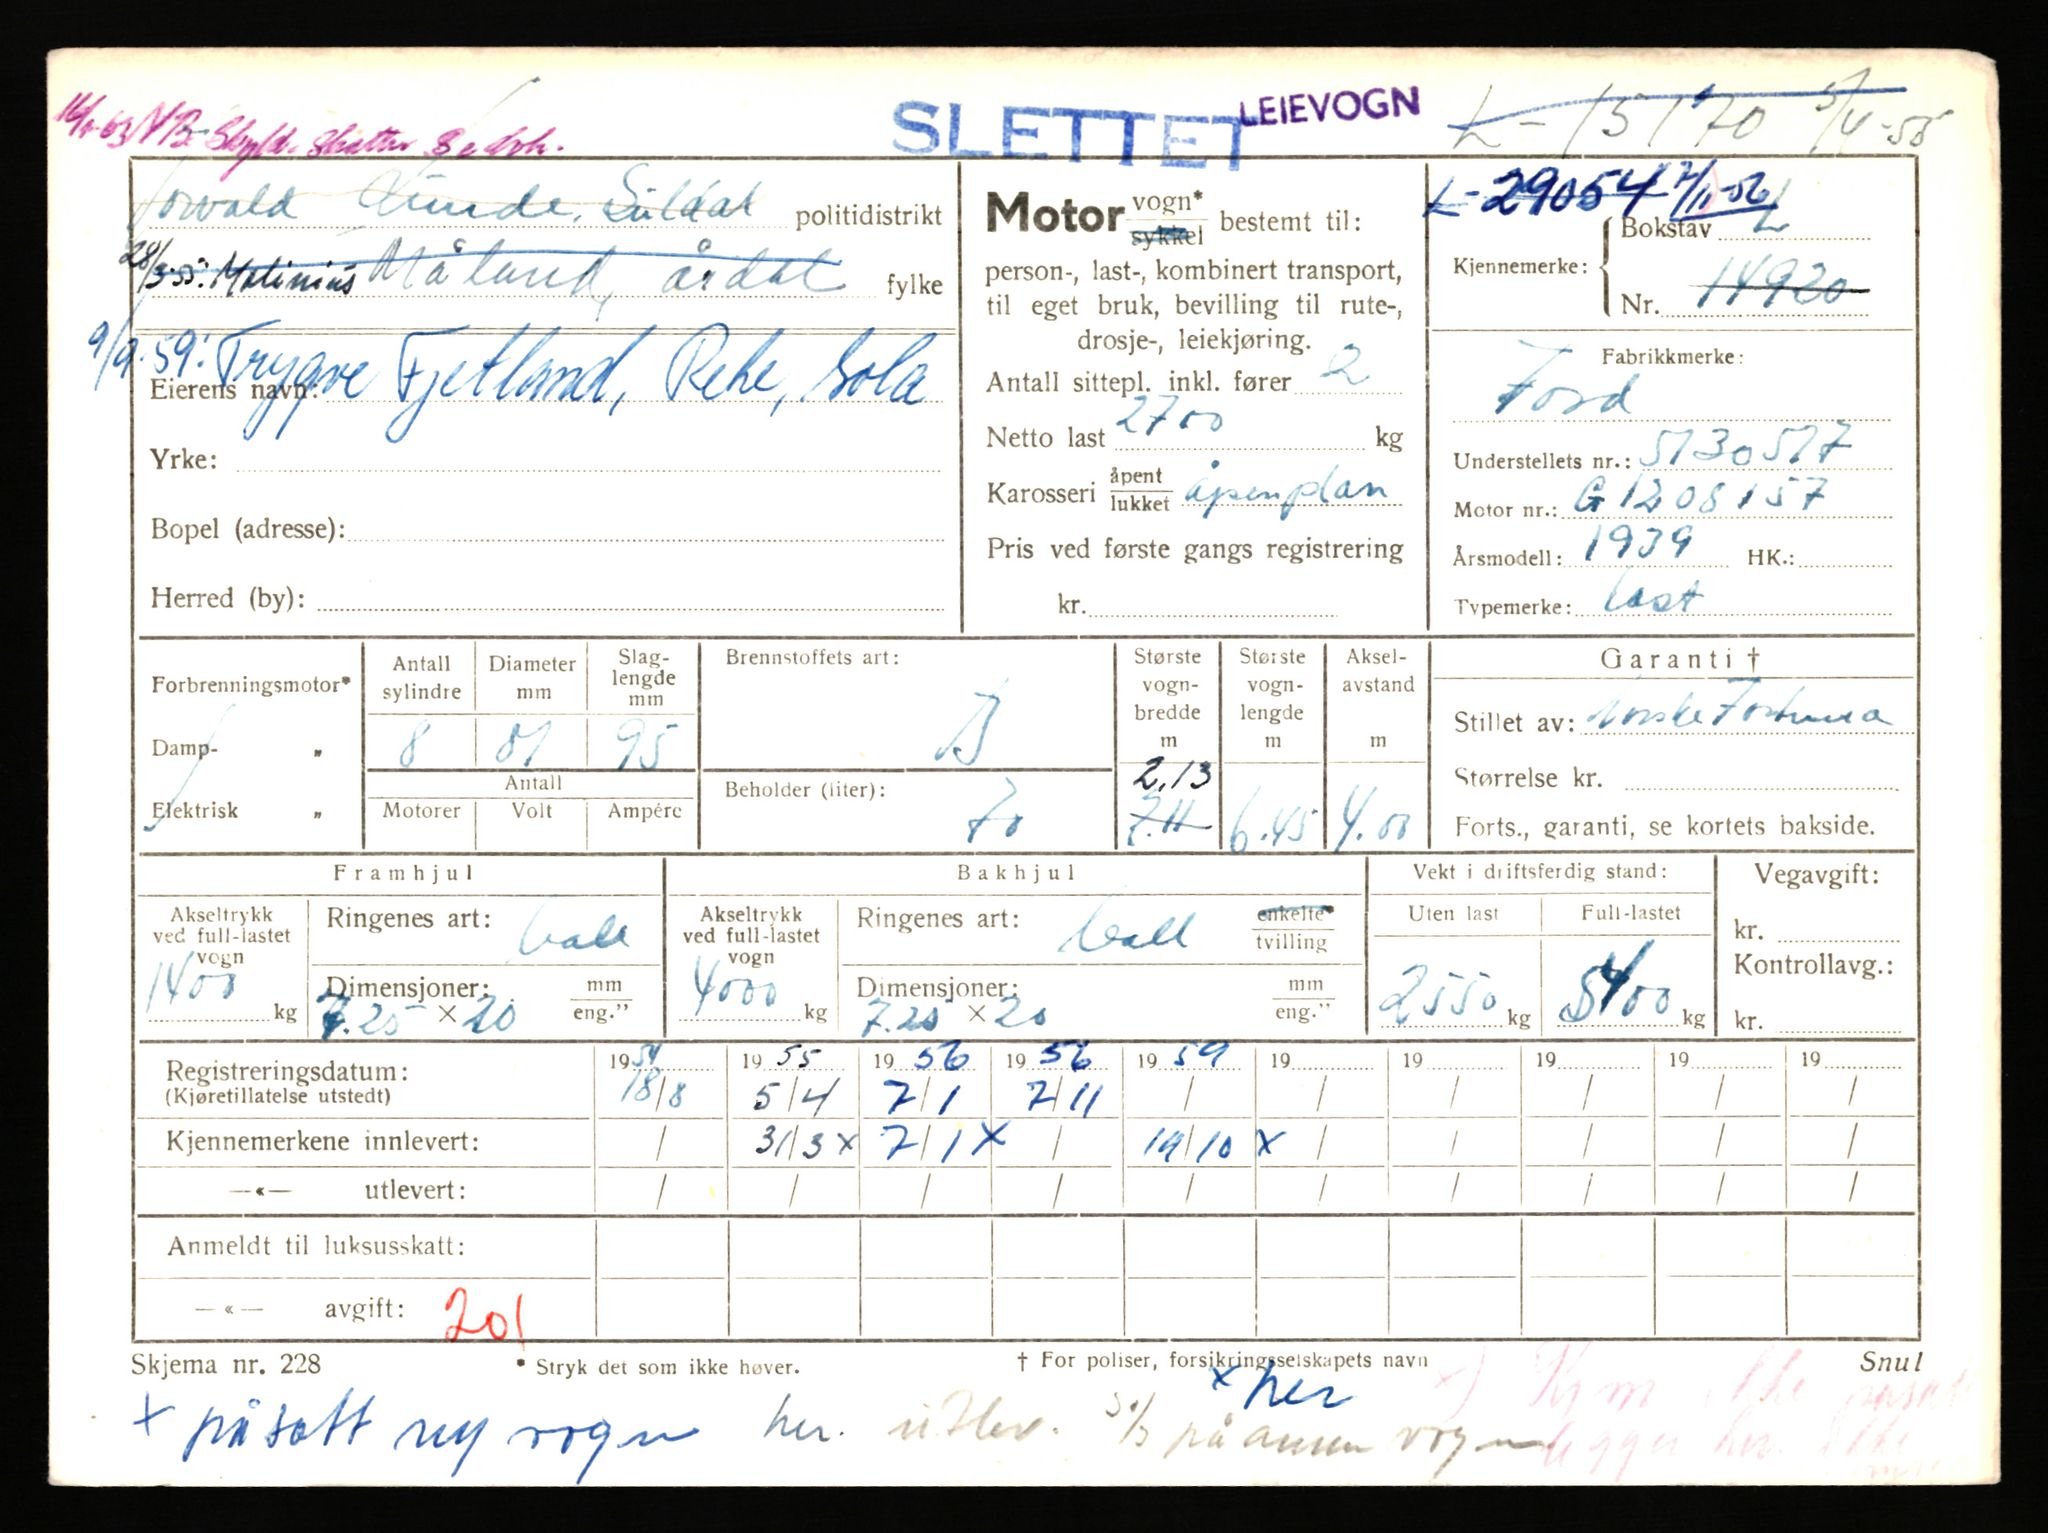 SLETTET LEIEVOGN L-15170 5/4-55
L-29054 7/11-56
Torvald Sunde, Suldal politidistrikt
28/3-55: Malinius Måland, årdal fylke
9/9-59: Trygve Fjetland, Rehe, Sola
Eierens navn:
Yrke:
Bopel (adresse):
Herred (by):
Motor vogn* sykkel bestemt til:
person-, last-, kombinert transport,
til eget bruk, bevilling til rute-,
drosje-, leiekjøring.
Antall sittepl. inkl. fører 2
Netto last 2700 kg
Karosseri åpent lukket åpenplan
Pris ved første gangs registrering
kr.
Kjennemerke: Bokstav L
Nr. 14920
Fabrikkmerke:
Ford
Understellets nr.: 5130517
Motor nr.: G1208157
Årsmodell: 1939 HK.:
Typemerke: last
Forbrenningsmotor*
Damp- „
Elektrisk „
Antall sylindre 8
Diameter mm 81
Slag-lengde mm 95
Antall
Motorer Volt Ampére
Brennstoffets art: B
Beholder (liter): 70
Største vogn-bredde m 2,13 7.11
Største vogn-lengde m 6.45
Aksel-avstand m 4.00
Garanti †
Stillet av: Norske Fortuna
Størrelse kr.
Forts., garanti, se kortets bakside.
Framhjul
Akseltrykk ved full-lastet vogn 1400 kg
Ringenes art:
Dimensjoner: 7.25 × 20 mm eng."
Bakhjul
Akseltrykk ved full-lastet vogn 4000 kg
Ringenes art: enkelte* tvilling
Dimensjoner: 7.25 × 20 mm eng."
Vekt i driftsferdig stand:
Uten last 2550 kg
Full-lastet 5400 kg
Vegavgift:
kr.
Kontrollavg.:
kr.
Registreringsdatum: 1954 1955 1956 1956 1959 19 19 19 19 19
(Kjøretillatelse utstedt) 18/8 5/4 7/1 7/11 / / / / / /
Kjennemerkene innlevert: / 31/3 x 7/1 x / 19/10 x / / / / /
—«— utlevert: / / / / / / / / / /
Anmeldt til luksusskatt:
—«— avgift: 201
Skjema nr. 228 * Stryk det som ikke høver. † For poliser, forsikringsselskapets navn Snul
x her
x påsatt ny vogn her. utlev. på annen vogn